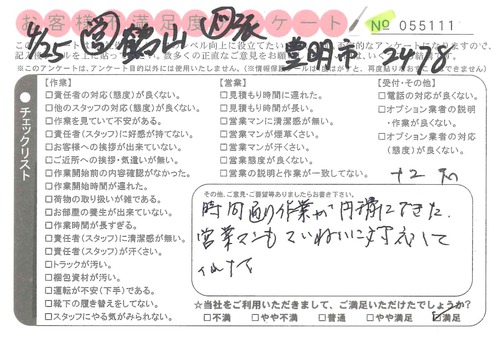 お客様満足度アンケート
No 055111
4/25 鶴山 豊明市 2478
※このアンケートは、アンケート目的以外には使用いたしません。
チェックリスト
【作業】
□責任者の対応(態度)が良くない。
□他のスタッフの対応(態度)が良くない。
□作業を見ていて不安がある。
□責任者(スタッフ)に好感が持てない。
□お客様への挨拶が出来ていない。
□ご近所への挨拶・気遣いが無い。
□作業開始前の内容確認がなかった。
□作業開始時間が遅れた。
□荷物の取り扱いが雑である。
□お部屋の養生が出来ていない。
□作業時間が長すぎる。
□責任者(スタッフ)に清潔感が無い。
□責任者(スタッフ)が汗くさい。
□トラックが汚い。
□梱包資材が汚い。
□運転が不安(下手)である。
□靴下の履き替えをしてない。
□スタッフにやる気がみられない。
【営業】
□見積もり時間に遅れた。
□見積もり時間が長い。
□営業マンに清潔感が無い。
□営業マンが煙草くさい。
□営業マンが汗くさい。
□営業態度が良くない。
□営業の説明と作業が一致してない。
【受付・その他】
□電話の対応が良くない。
□オプション業者の説明・作業が良くない。
□オプション業者の対応(態度)が良くない。
その他、ご意見・ご要望等ありましたらお書き下さい。
時間通り作業が円滑にできた。
営業マンもていねいに対応して
☆当社をご利用いただきまして、ご満足いただけたでしょうか?
□不満 □やや不満 □普通 □やや満足 ☑満足